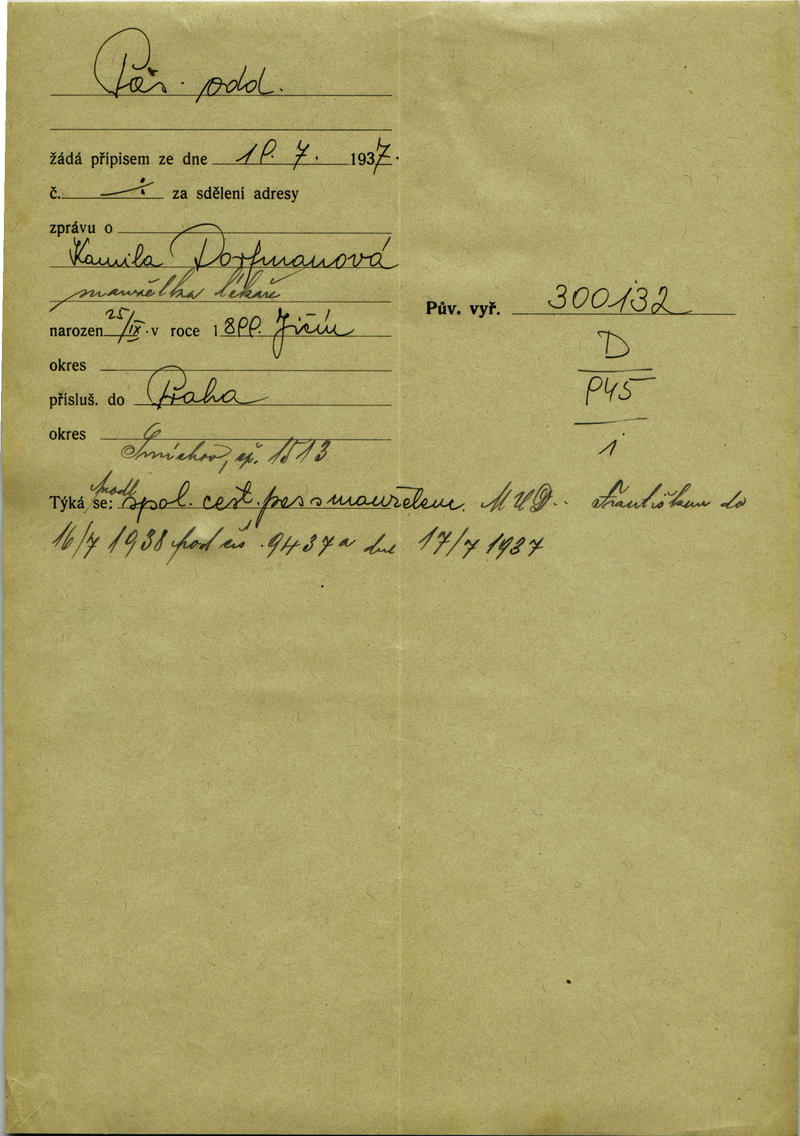 Pas. odd.
žádá přípisem ze dne 10. 7. 1937.
č. ⁒ za sdělení adresy
zprávu o
Kamila Dorfmanová
manželka lékaře
narozen 25/IX. v roce 1899. Jičín
okres
přísluš. do Praha
okres
Smíchov, čp. 1513
Týká se: spol. cest. pas s manželem. MUD. Františkem do
16/7 1938 pod čís. 9437a dne 17/7 1937
Pův. vyř. 300132
D
P45
1